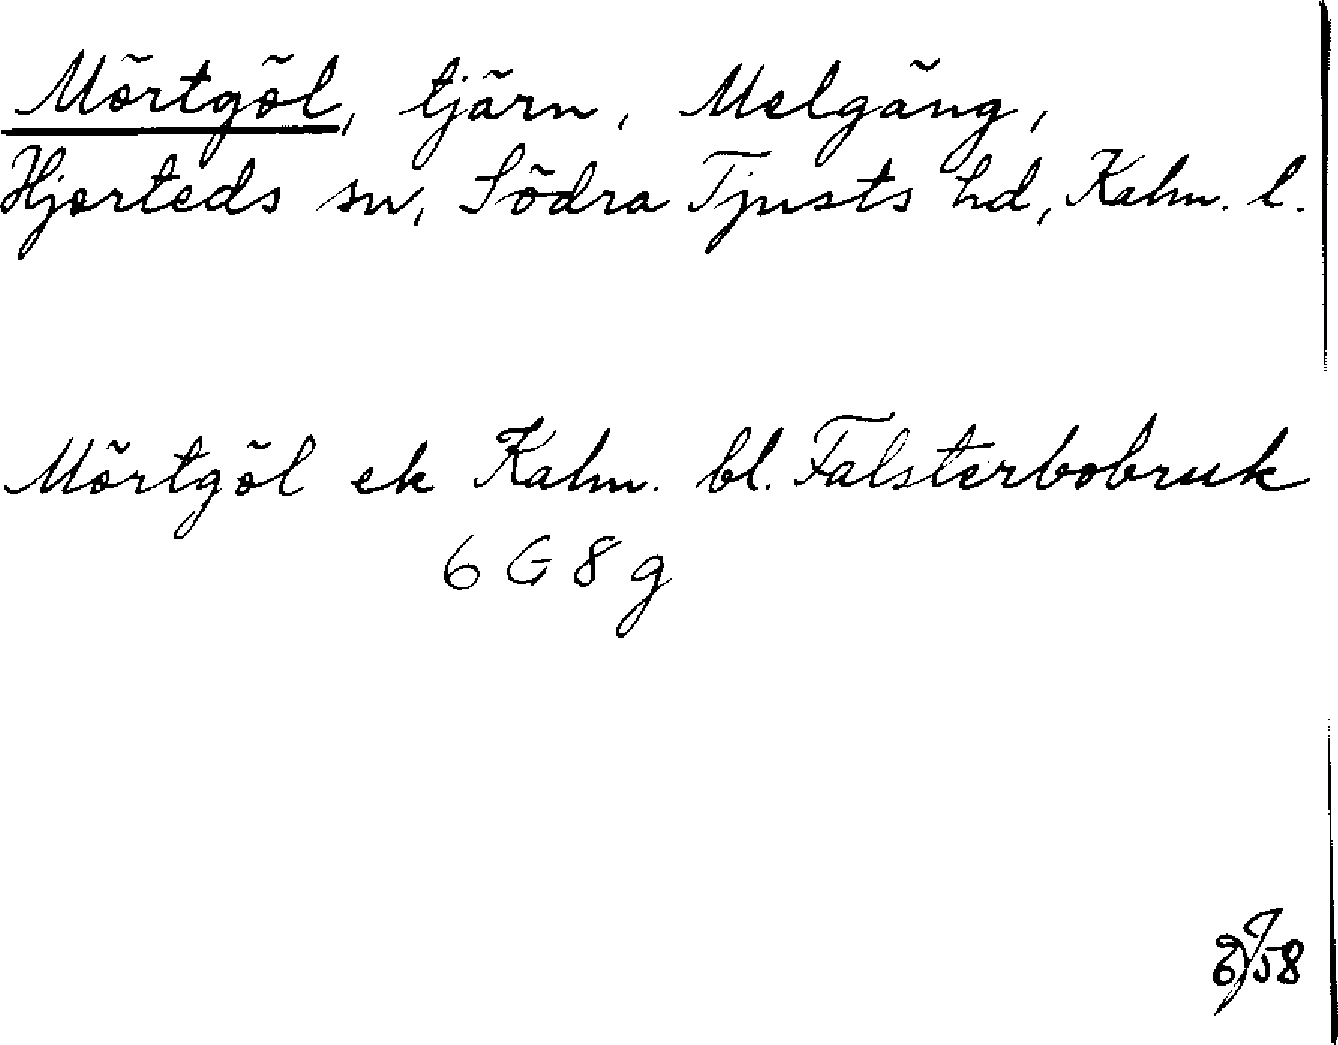 Mörtgöl, tjärn, Melgäng,
Hjorteds sn, Södra Tjusts hd, Kalm. l.
Mörtgöl ek Kalm. bl. Falsterbobruk
6 G 8 g